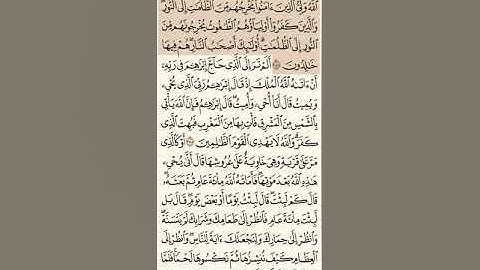 ٱللَّهُ وَلِىُّ ٱلَّذِينَ ءَامَنُوا۟ يُخْرِجُهُم مِّنَ ٱلظُّلُمَٰتِ إِلَى ٱلنُّورِ
وَٱلَّذِينَ كَفَرُوٓا۟ أَوْلِيَآؤُهُمُ ٱلطَّٰغُوتُ يُخْرِجُونَهُم مِّنَ
ٱلنُّورِ إِلَى ٱلظُّلُمَٰتِ أُو۟لَٰٓئِكَ أَصْحَٰبُ ٱلنَّارِ هُمْ فِيهَا
خَٰلِدُونَ ۝ أَلَمْ تَرَ إِلَى ٱلَّذِى حَآجَّ إِبْرَٰهِۦمَ فِى رَبِّهِۦٓ
أَنْ ءَاتَىٰهُ ٱللَّهُ ٱلْمُلْكَ إِذْ قَالَ إِبْرَٰهِۦمُ رَبِّىَ ٱلَّذِى يُحْىِۦ
وَيُمِيتُ قَالَ أَنَا۠ أُحْىِۦ وَأُمِيتُ قَالَ إِبْرَٰهِۦمُ فَإِنَّ ٱللَّهَ يَأْتِى
بِٱلشَّمْسِ مِنَ ٱلْمَشْرِقِ فَأْتِ بِهَا مِنَ ٱلْمَغْرِبِ فَبُهِتَ ٱلَّذِى
كَفَرَ وَٱللَّهُ لَا يَهْدِى ٱلْقَوْمَ ٱلظَّٰلِمِينَ ۝ أَوْ كَٱلَّذِى
مَرَّ عَلَىٰ قَرْيَةٍ وَهِىَ خَاوِيَةٌ عَلَىٰ عُرُوشِهَا قَالَ أَنَّىٰ يُحْىِۦ
هَٰذِهِ ٱللَّهُ بَعْدَ مَوْتِهَا فَأَمَاتَهُ ٱللَّهُ مِا۟ئَةَ عَامٍ ثُمَّ بَعَثَهُۥ
قَالَ كَمْ لَبِثْتَ قَالَ لَبِثْتُ يَوْمًا أَوْ بَعْضَ يَوْمٍ قَالَ بَل
لَّبِثْتَ مِا۟ئَةَ عَامٍ فَٱنظُرْ إِلَىٰ طَعَامِكَ وَشَرَابِكَ لَمْ يَتَسَنَّهْ
وَٱنظُرْ إِلَىٰ حِمَارِكَ وَلِنَجْعَلَكَ ءَايَةً لِّلنَّاسِ وَٱنظُرْ إِلَى
ٱلْعِظَامِ كَيْفَ نُنشِزُهَا ثُمَّ نَكْسُوهَا لَحْمًا فَلَمَّا